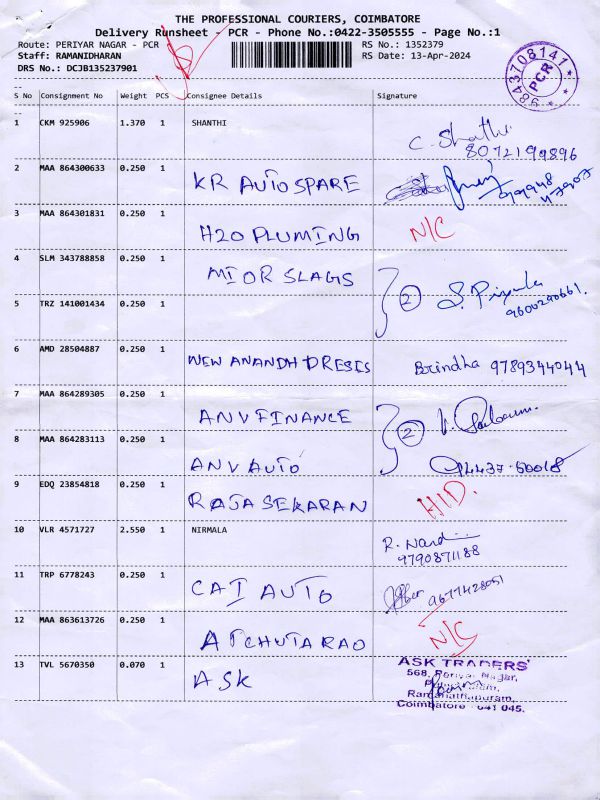 THE PROFESSIONAL COURIERS, COIMBATORE
Delivery Runsheet - PCR - Phone No.:0422-3505555 - Page No.:1
Route: PERIYAR NAGAR - PCR
RS No.: 1352379
Staff: RAMANIDHARAN
RS Date: 13-Apr-2024
DRS No.: DCJB135237901
9843708141 PCR
S No Consignment No Weight PCS Consignee Details Signature
1 CKM 925906 1.370 1 SHANTHI C. Shathi
8072199896
2 MAA 864300633 0.250 1 KR AUTO SPARE
3 MAA 864301831 0.250 1 H2O PLUMING N/C
4 SLM 343788858 0.250 1 MIOR SLAGS
5 TRZ 141001434 0.250 1 2 S. Priyanka
9600290661.
6 AMD 28504887 0.250 1 NEW ANANDH DRESES Brindha 9789344044
7 MAA 864289305 0.250 1 ANV FINANCE
8 MAA 864283113 0.250 1 ANV AUTO 2
9 EDQ 23854818 0.250 1 RAJA SEKARAN HID.
10 VLR 4571727 2.550 1 NIRMALA R. Nandi
9790871188
11 TRP 6778243 0.250 1 CAI AUTO 9677428051
12 MAA 863613726 0.250 1 ATCHUTARAO N/C
13 TVL 5670350 0.070 1 ASK
ASK TRADERS
568, Periyar Nagar,
Ramanathapuram,
Coimbatore - 641 045.